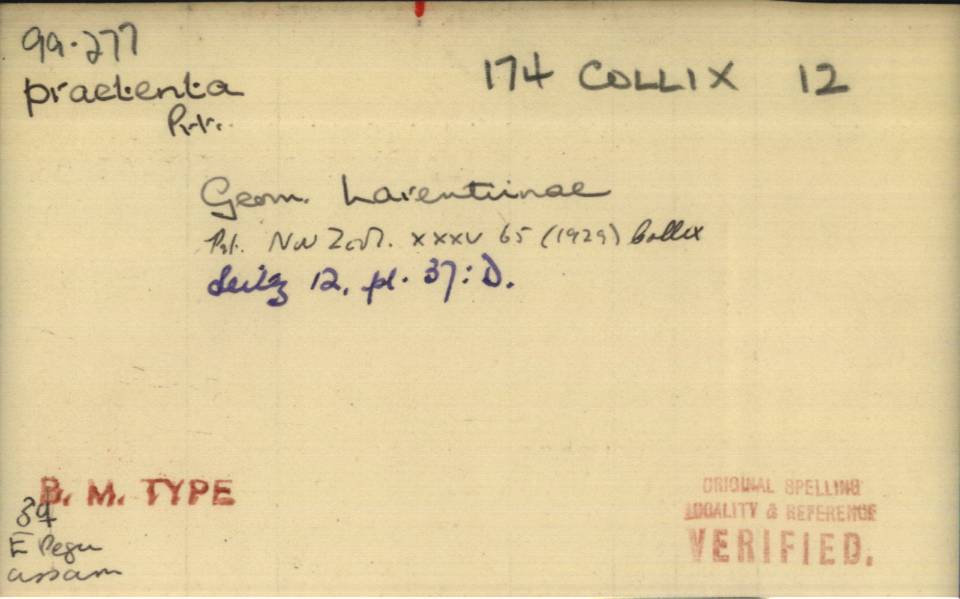 99.277
praetenta
Prt.
174 COLLIX 12
Geom. Larentiinae
Prt. Nov Zool. XXXV 65 (1929) Collix
Seitz 12, pl. 37:D.
B. M. TYPE
♂♀
E Pegu
Assam
ORIGINAL SPELLING
LOCALITY & REFERENCE
VERIFIED.